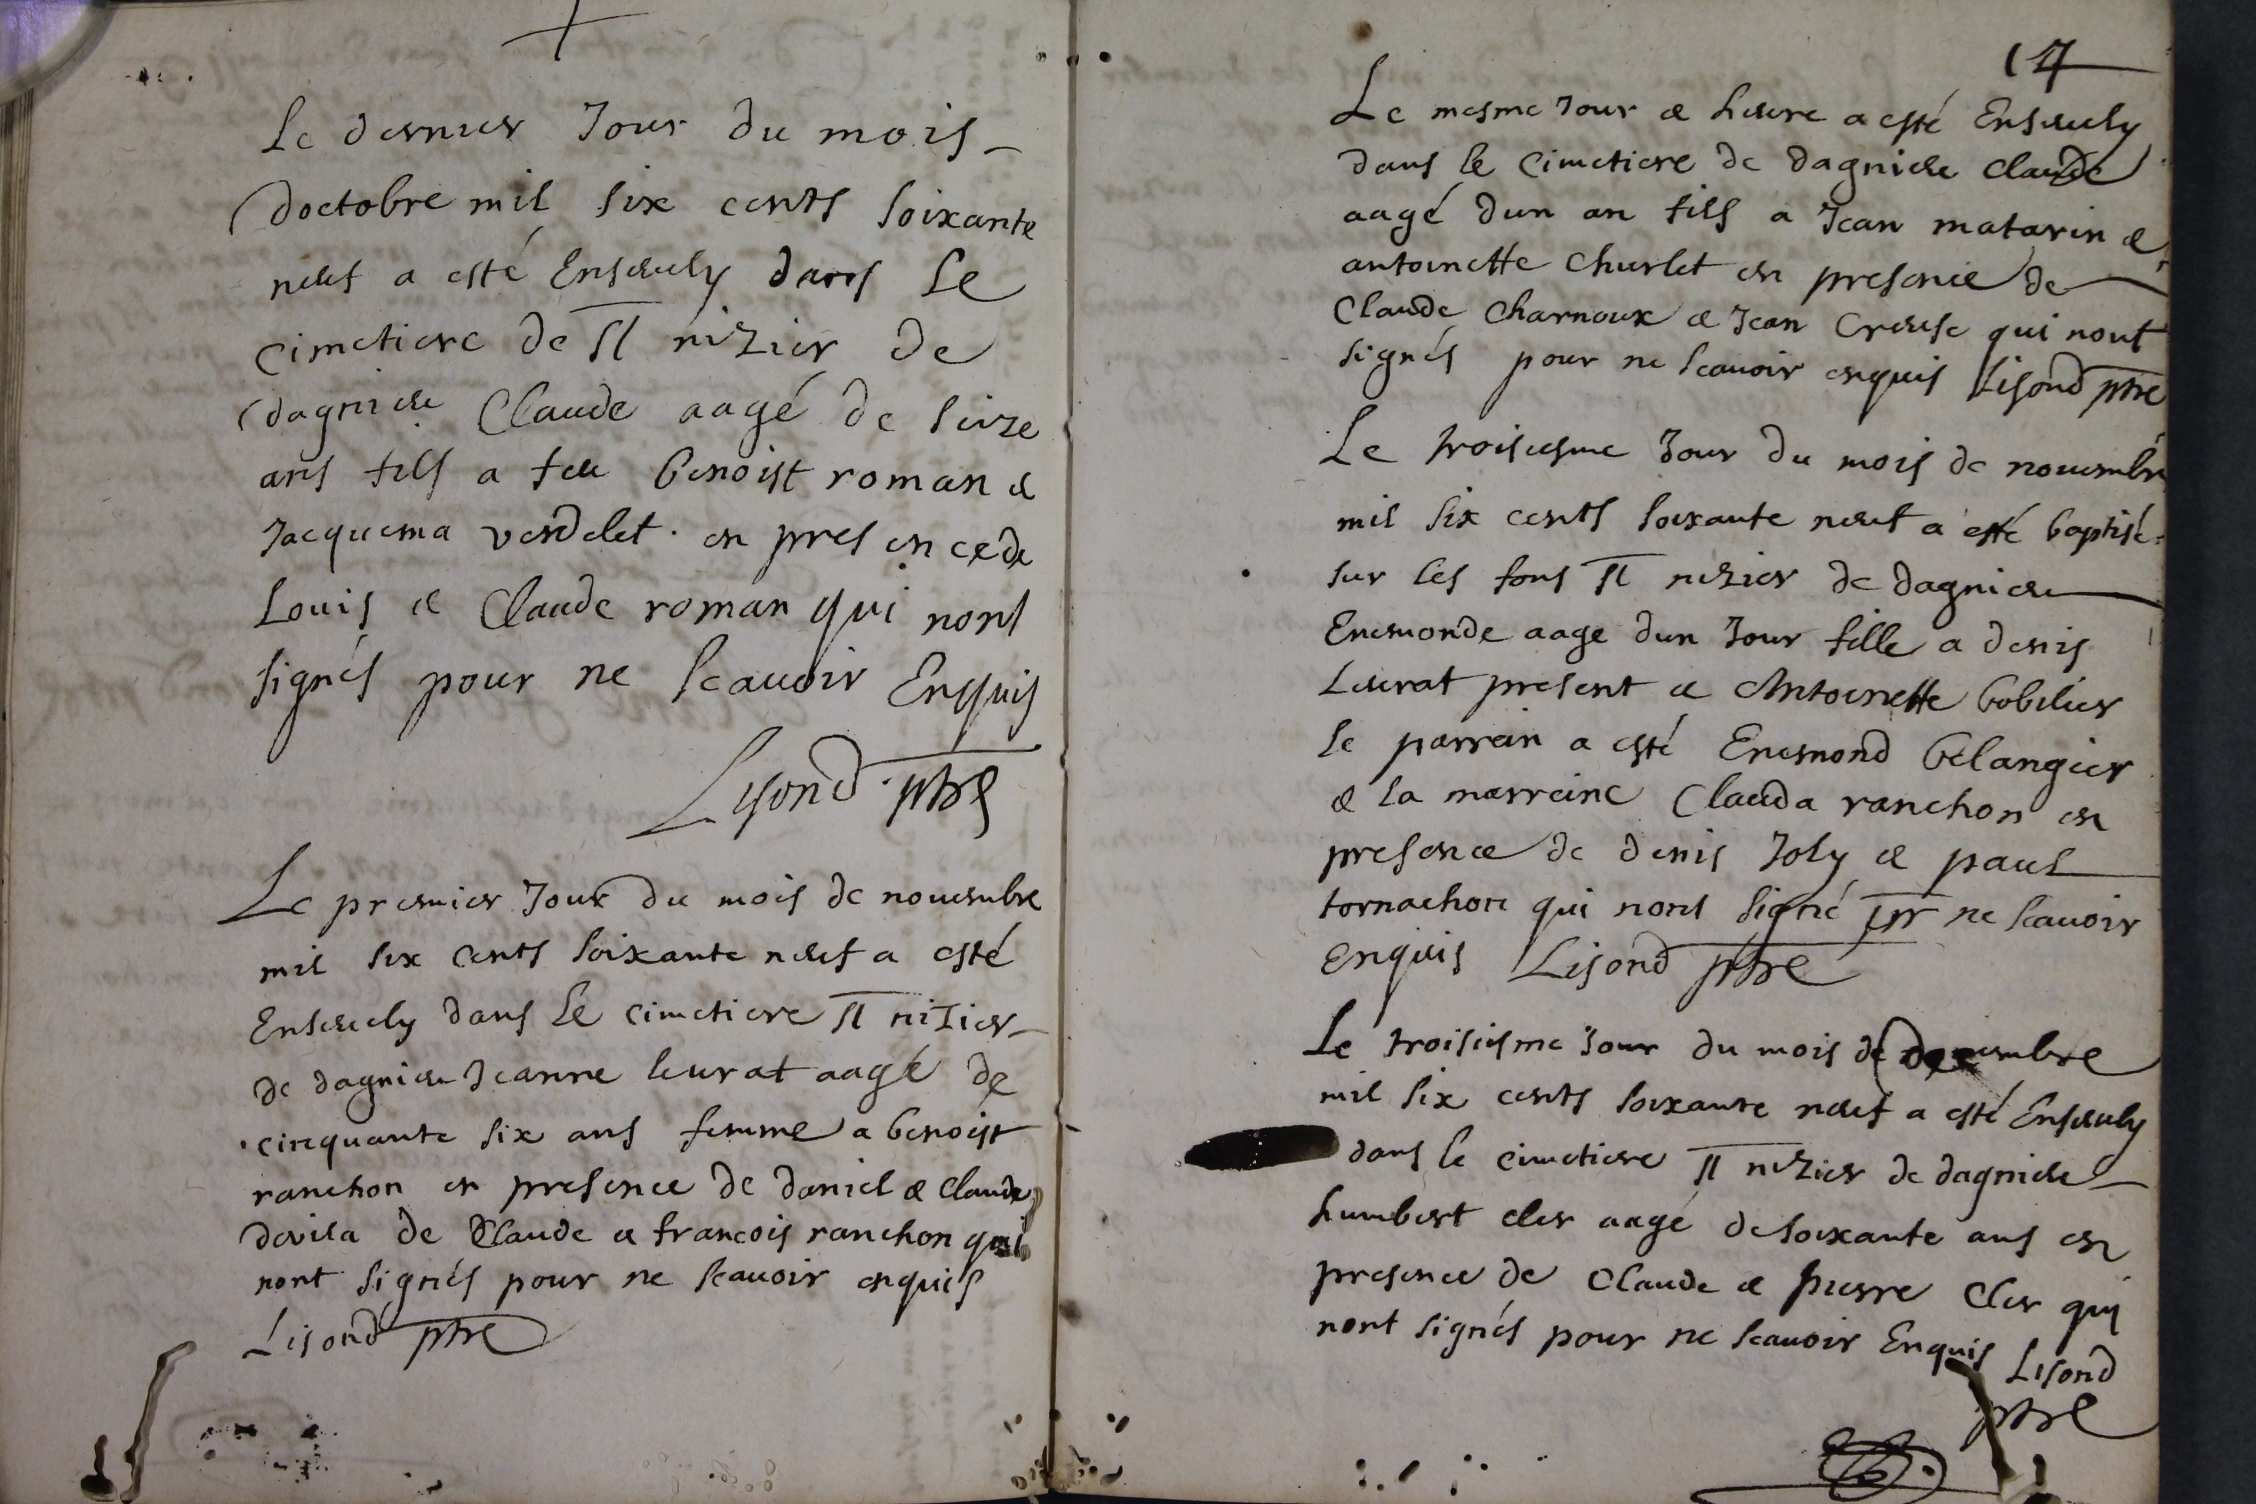 Le dernier Jour du mois
doctobre mil six cents soixante
neuf a esté Enseuely dans Le
cimetiere de st nizier de
dagnieu Claude aagé de seize
ans fils a feu benoist roman &
Jacquema verdelet. en presencede
Louis & Claude roman qui nont
signés pour ne scauoir Enquis
Lisond ptre
Le premier Jour du mois de nouembre
mil six cents soixante neuf a esté
Enseuely dans Le cimetiere st nizier
de dagnieu Jeanne leurat aagé de
cinquante six ans femme a benoist
ranchon en presence de daniel & claude
devila de Claude & francois ranchon qui
nont signés pour ne scauoir enquis
Lisond ptre
14
Le mesme Jour & heure a esté Enseuely
dans le cimetiere de dagnieu claude
aagé dun an fils a Jean matarin &
antoinette churlet en presence de
Claude charnoux & Jean Creuse qui nont
signés pour ne scauoir enquis Lisond ptre
Le troisiesme Jour du mois de nouembre
mil six cents soixante neuf a esté baptisé
sur les fons st nizier de dagnieu
Enemonde aage dun Jour fille a denis
Leurat present & Antoinette bobilier
le parrein a esté Enemond belangier
& la marreine Clauda ranchon en
presence de denis Joly & paul
tornachon qui nont signé pr ne scauoir
enquis Lisond ptre
Le troisiesme Jour du mois de decembre
mil six cents soixante neuf a esté Enseuely
dans le cimetiere st nizier de dagnieu
humbert cler aagé desoixante ans en
presence de Claude & pierre Cler qui
nont signés pour ne scauoir Enquis Lisond
ptre